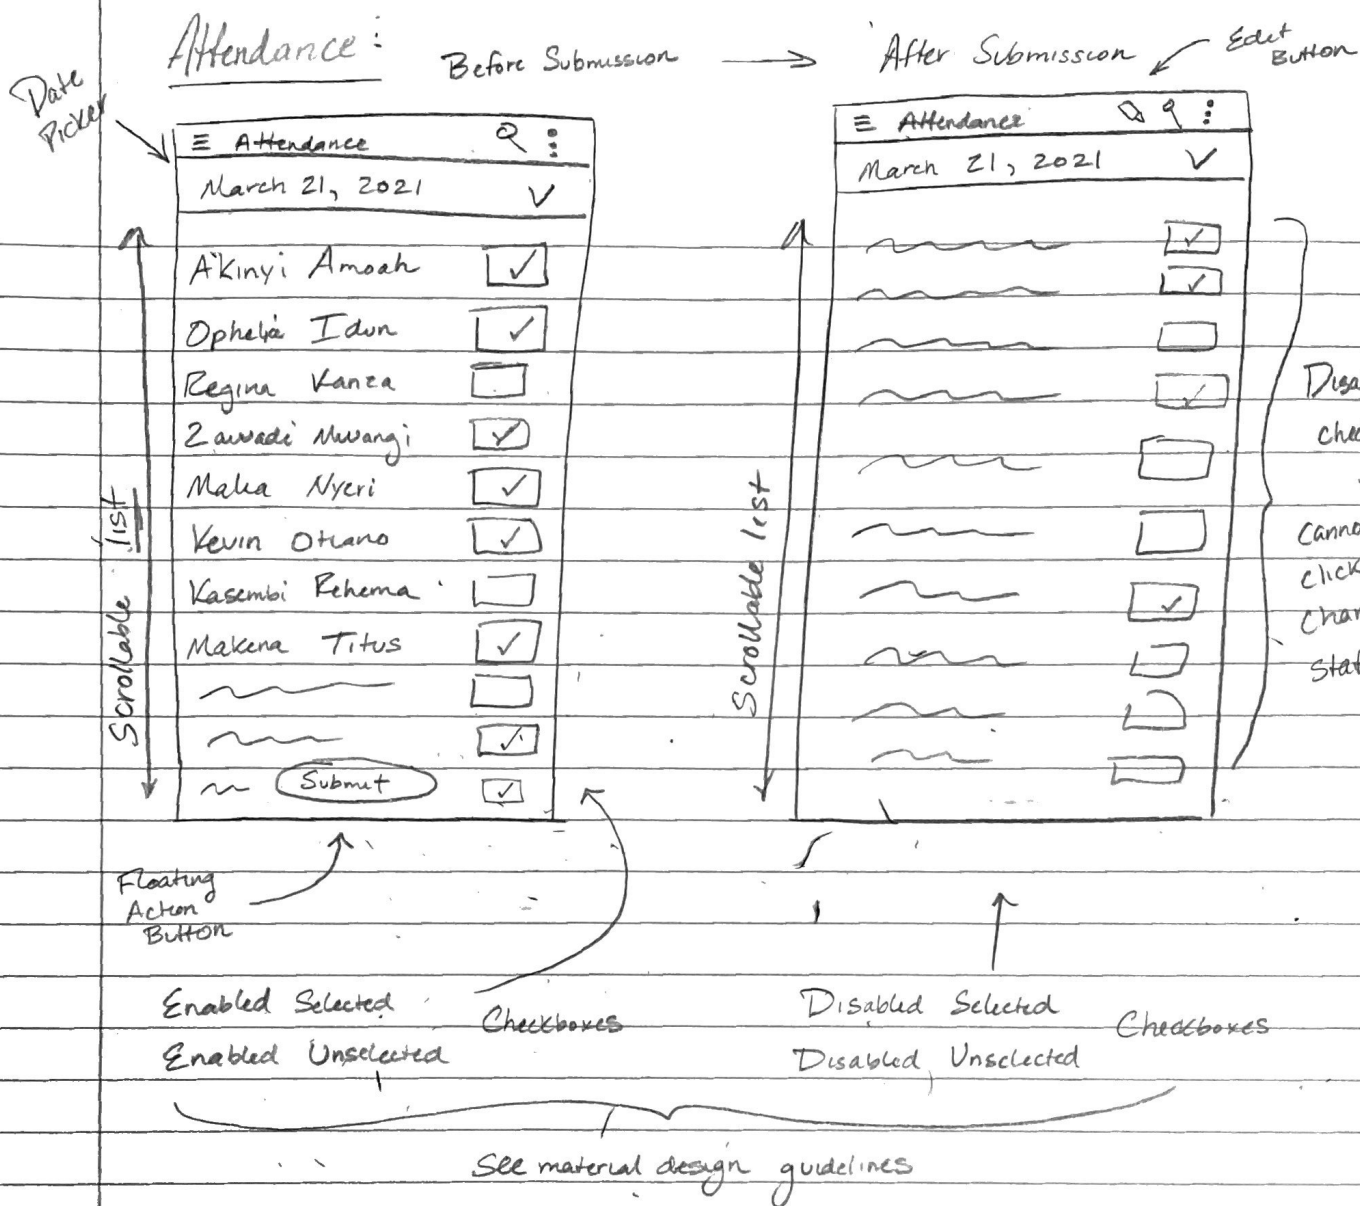 Attendance:
Before Submission
After Submission
Edit
Button
Date
Picker
Attendance
March 21, 2021
Akinyi Amoah
Ophelia Idun
Regina Kanza
Zawadi Mwangi
Malia Nyeri
Kevin Otiano
Kasembi Rehema
Makena Titus
Submit
Scrollable list
Floating
Action
Button
Enabled Selected
Enabled Unselected
Checkboxes
Attendance
March 21, 2021
Scrollable list
Disa
chec
canno
click
chan
stat
Disabled Selected
Disabled Unselected
Checkboxes
See material design guidelines